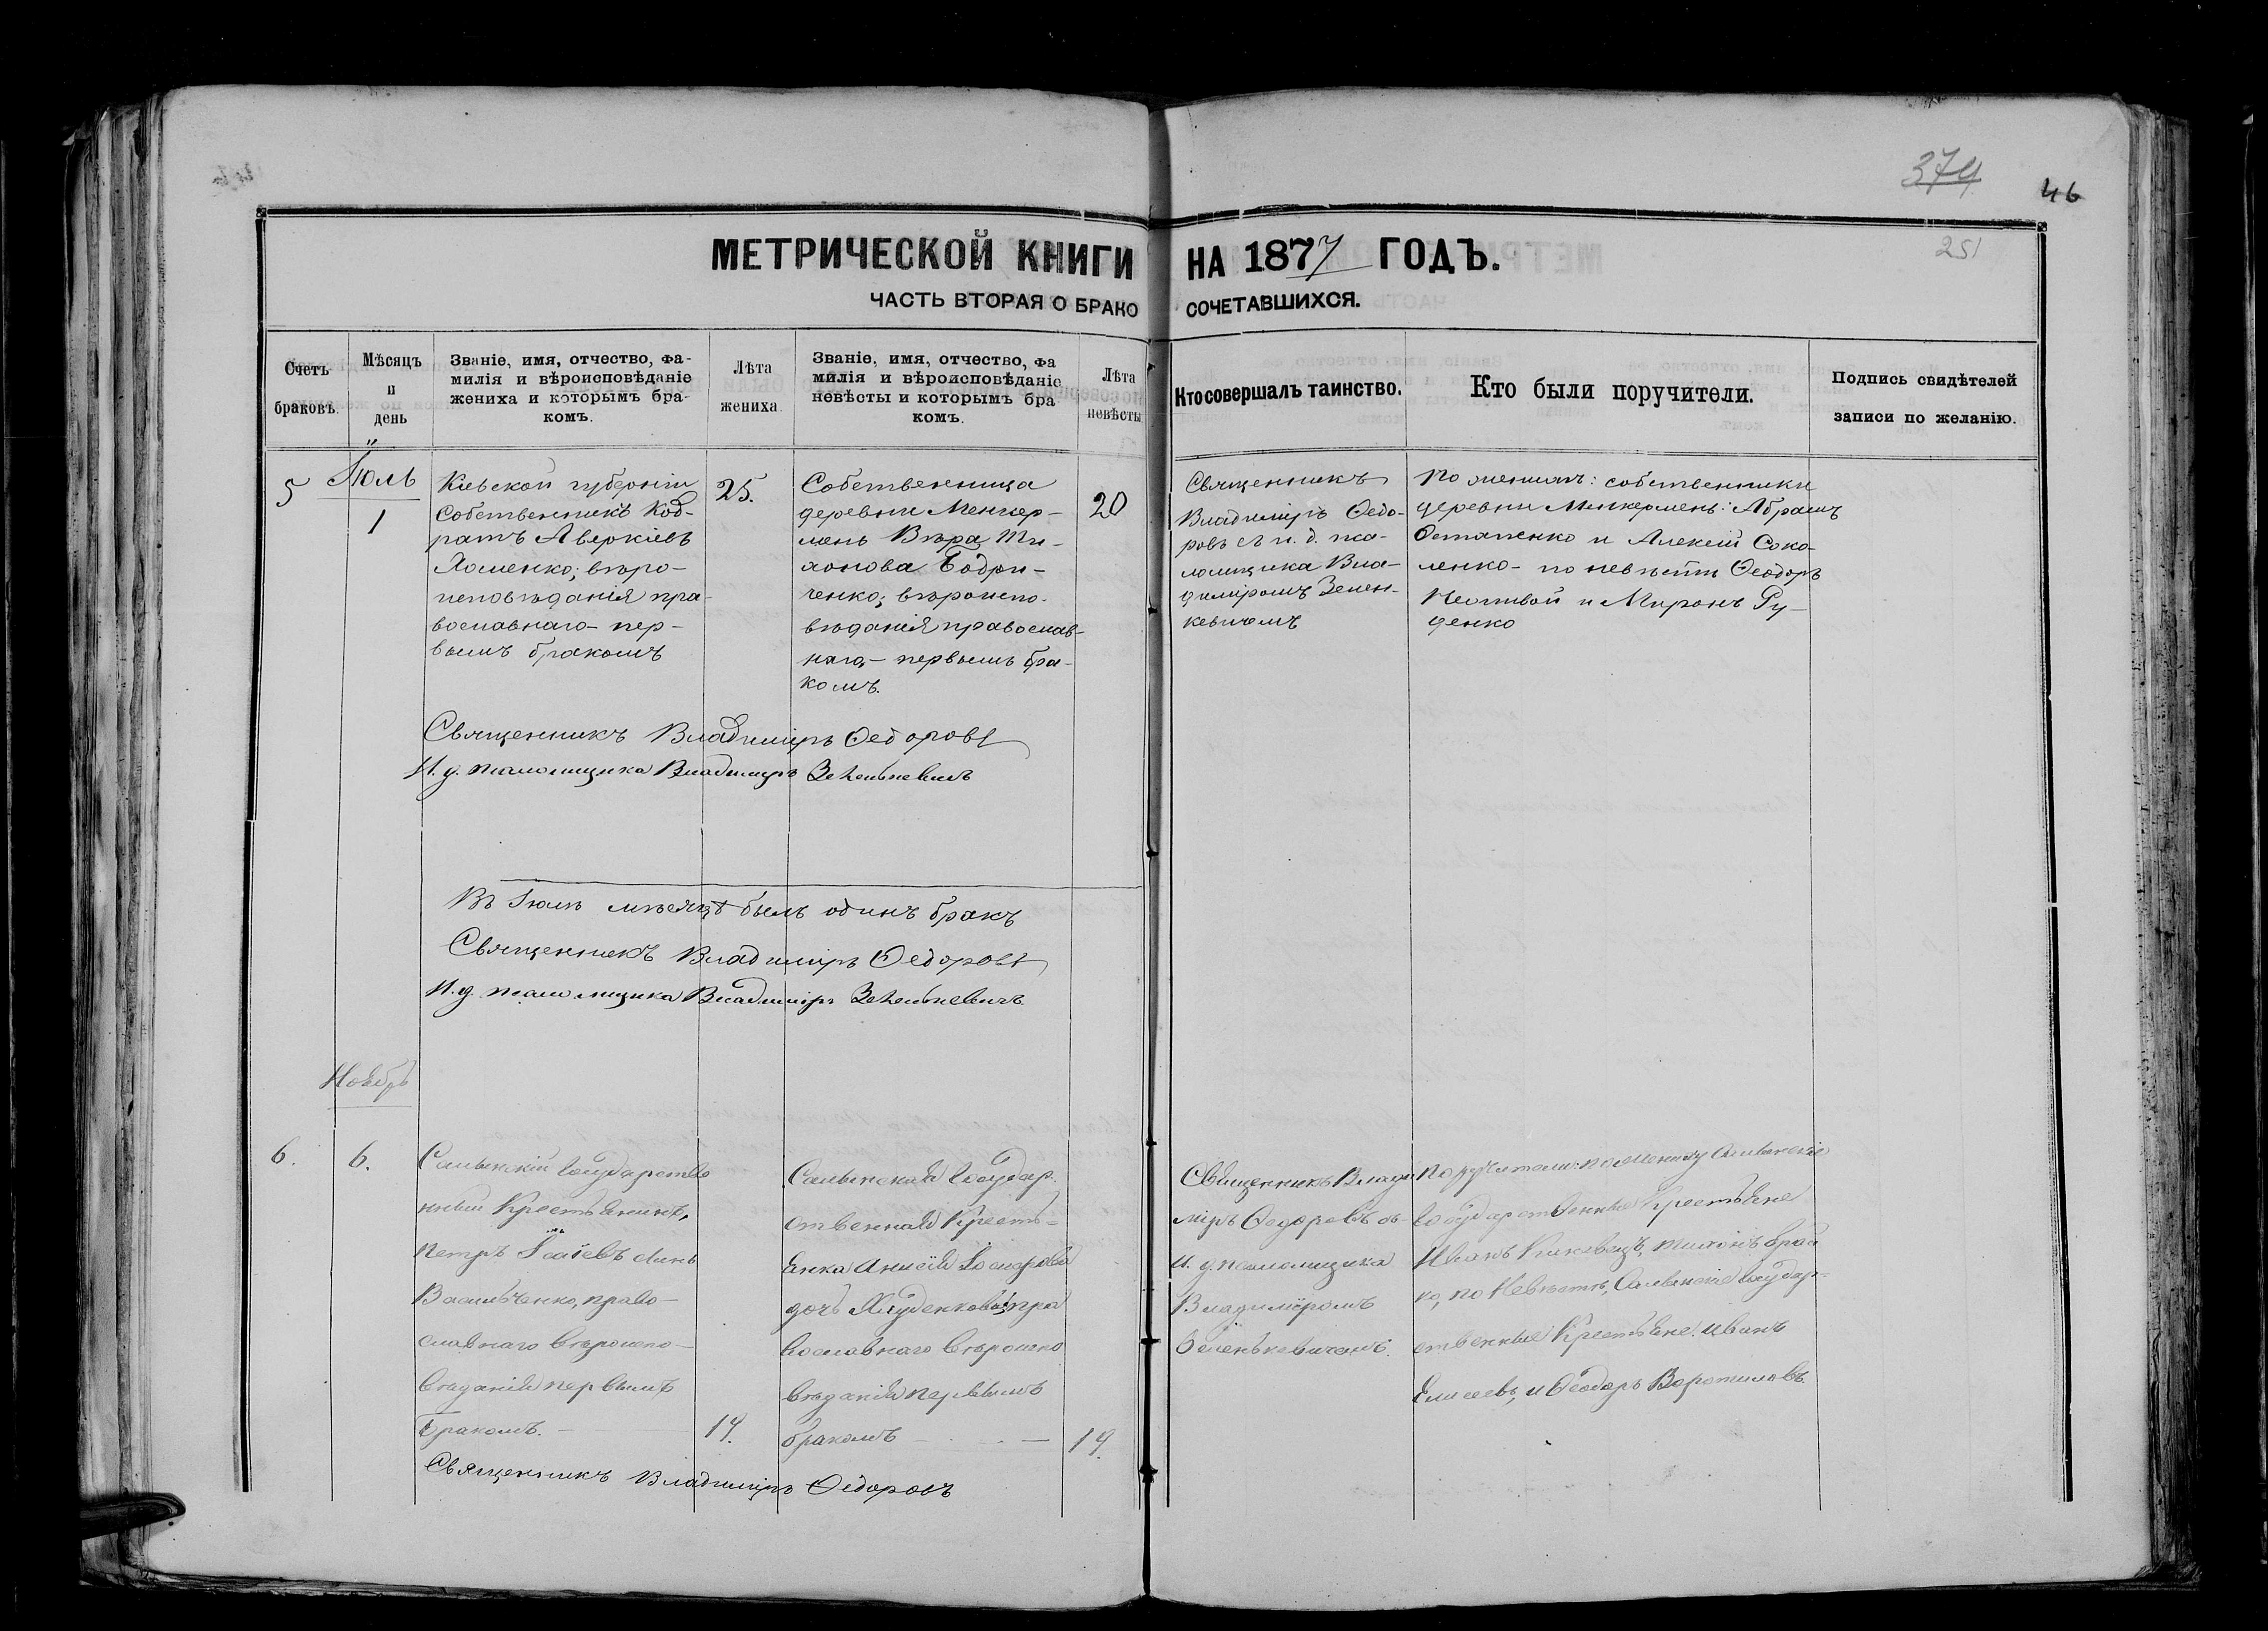 374
46
251
МЕТРИЧЕСКОЙ КНИГИ НА 1877 ГОДЪ.
ЧАСТЬ ВТОРАЯ О БРАКОСОЧЕТАВШИХСЯ.
Счетъ браковъ.
Мѣсяцъ и день
Званіе, имя, отчество, фа-
милія и вѣроисповѣданіе
жениха и которымъ бра-
комъ.
Лѣта жениха.
Званіе, имя, отчество, фа
милія и вѣроисповѣданіе
невѣсты и которымъ бра
комъ.
Лѣта невѣсты
Кто совершалъ таинство.
Кто были поручители.
Подпись свидѣтелей
записи по желанію.
5
Іюль
1
Кіевской губерніи
собственникъ Код-
ратъ Аверкіевъ
Хоменко; вѣро-
исповѣданія пра-
вославнаго - пер-
вымъ бракомъ
25.
Собственница
деревни Менчер-
мень Вѣра Ти-
хонова Бодри-
ченко; вѣроиспо-
вѣданія православ-
наго, - первымъ бра-
комъ.
20
Священникъ
Владиміръ Ѳедо-
ровъ съ и. д. пса-
ломщика Вла-
диміромъ Зелен-
кевичемъ
По женихѣ: собственники
деревни Минкермень: Абрамъ
Остапенко и Алексій Соко-
ленко - по невѣстѣ Ѳеодоръ
и Миронъ Ру-
денко
Священникъ Владиміръ Ѳедоровъ
И. д. псаломщика Владиміръ Зеленкевичъ
Въ Іюлѣ мѣсяцѣ былъ одинъ бракъ
Священникъ Владиміръ Ѳедоровъ
И. д. псаломщика Владиміръ Зеленкевичъ
Ноябрь
6.
6.
Салынскій Государстве
нный Крестьянинъ,
Петръ Исаіевъ сынъ
Васильченко, право-
славнаго вѣроиспо-
вѣданія первымъ
бракомъ.
19.
Салынская Государ.
ственная Кресть-
янка Анисія
дочь пра
вославнаго вѣроиспо
вѣданія первымъ
бракомъ
19.
Священникъ Влади
міръ Ѳедоровъ съ
И. д. псаломщика
Владиміромъ
Зеленькевичемъ.
Поручители: по жениху Салынскіе
Государственные Крестьяне
Иванъ Тихонъ
ко, по Невѣстѣ, Салынскіе Государ-
ственные Крестьяне: Иванъ
Елисеевъ, и Ѳеодоръ Воротиловъ.
Священникъ Владиміръ Ѳедоровъ